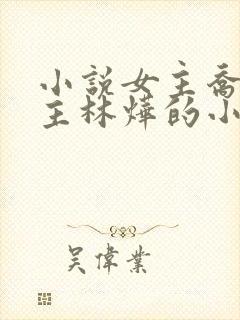 小說女主喬
主林燁的小
吳偉業